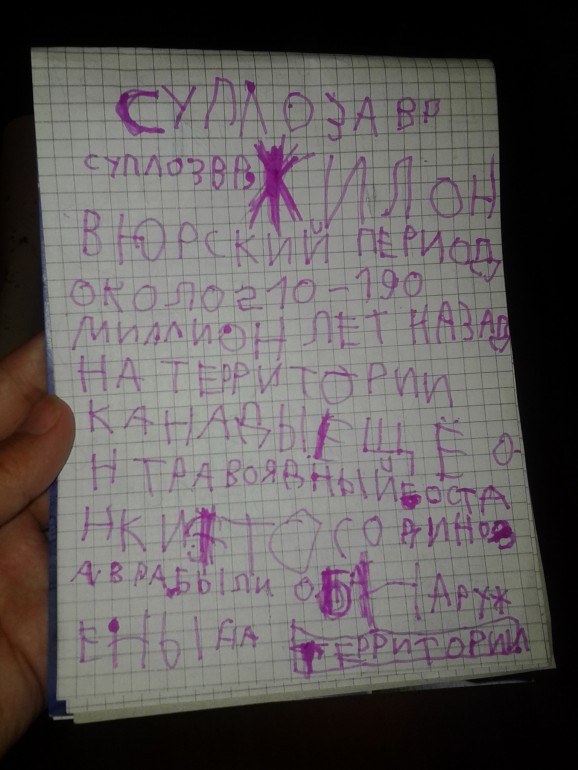 СУПЛОЗАВР
СУПЛОЗВВ ЖИЛ ОН
В ЮРСКИЙ ПЕРИОД
ОКОЛО 210-190
МИЛЛИОН ЛЕТ НАЗАД
НА ТЕРРИТОРИИ
КАНАДЫ ЕЩЁ О-
Н ТРАВОЯВНЫЙ ОСТА
НКИ ДИНОЗ
АВРА БЫЛИ ОБНАРУЖ
ЕНЫ НА ТЕРРИТОРИИ